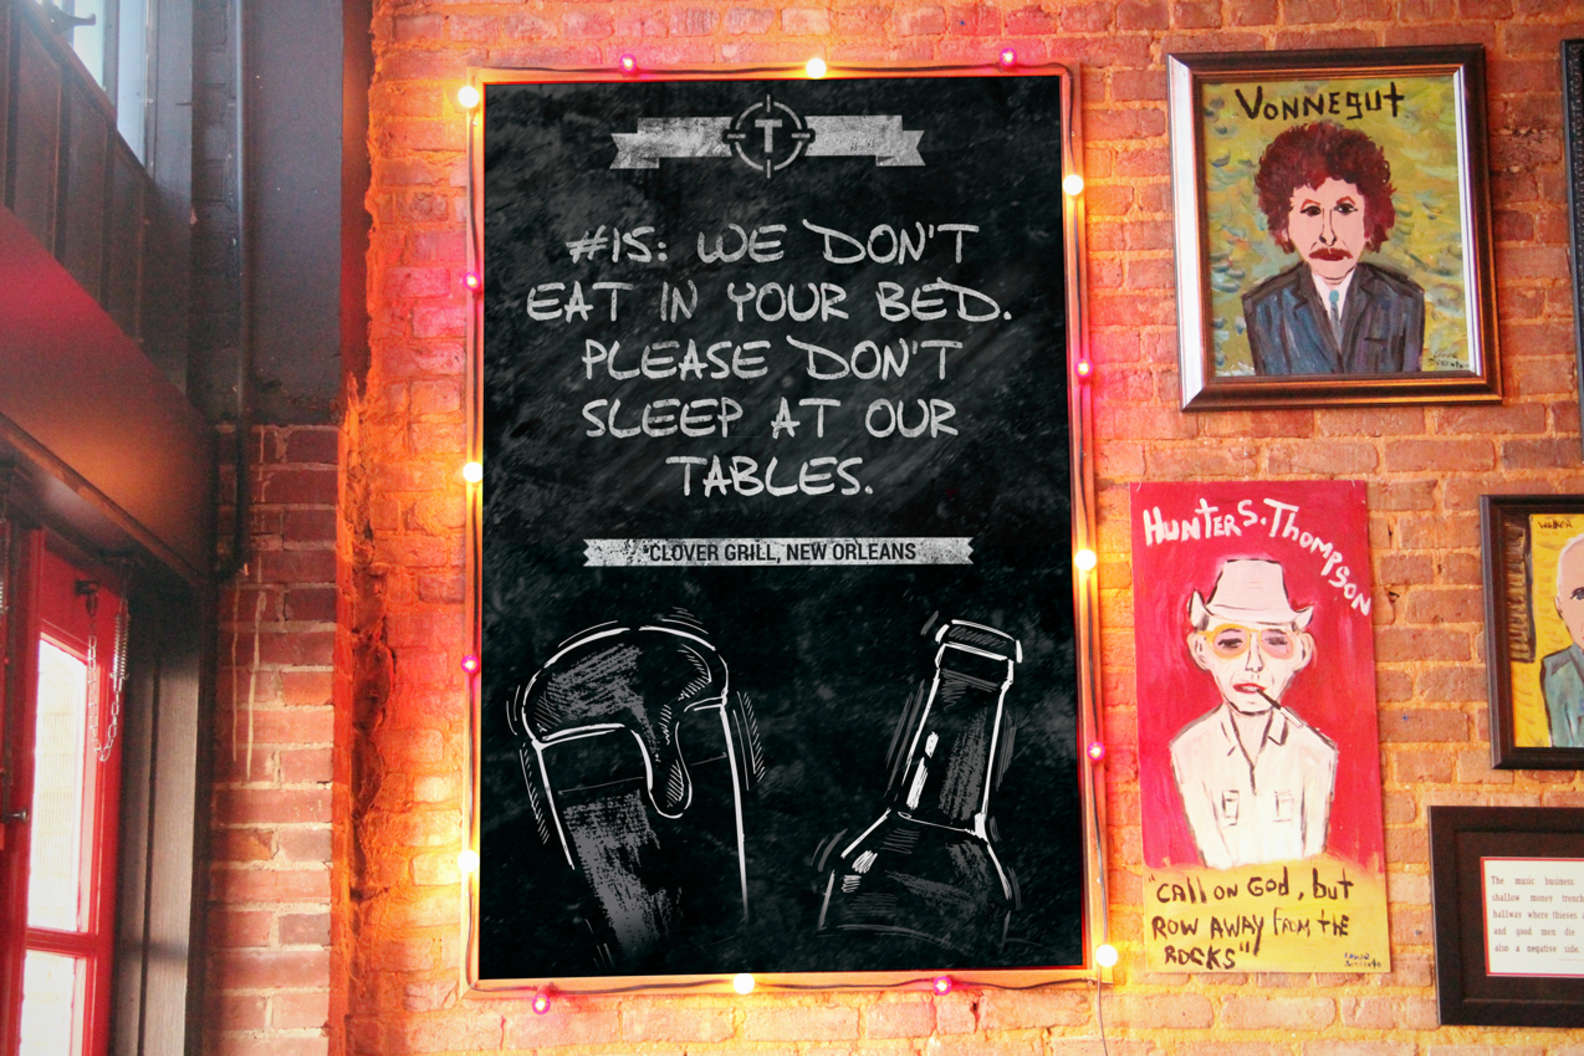 T
#15: WE DON'T
EAT IN YOUR BED.
PLEASE DON'T
SLEEP AT OUR
TABLES.
CLOVER GRILL, NEW ORLEANS
VONNEgUt
HUNTER S. THOMPSON
"CAll ON GOd, buT
ROW AWAY FROM tHE
ROCKS"
The music business
shallow money trench
hallway where thieves
and good men die
also a negative side.